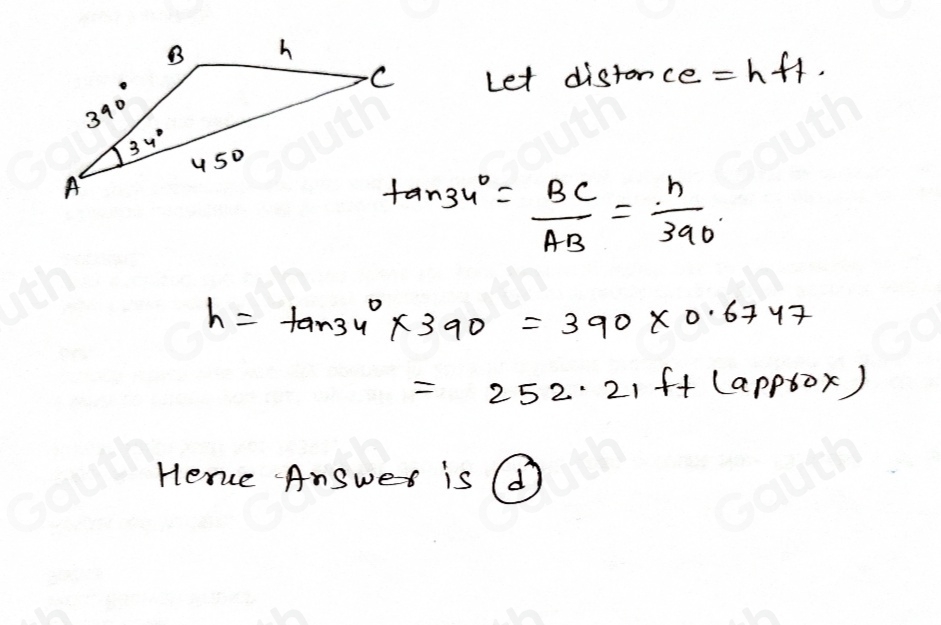 B h C
390°
34°
450
A
Let distance = h ft.
tan34° = BC/AB = h/390.
h = tan34° × 390 = 390 × 0.6747
= 252.21 ft (approx)
Henue Answer is (d)
Gauth